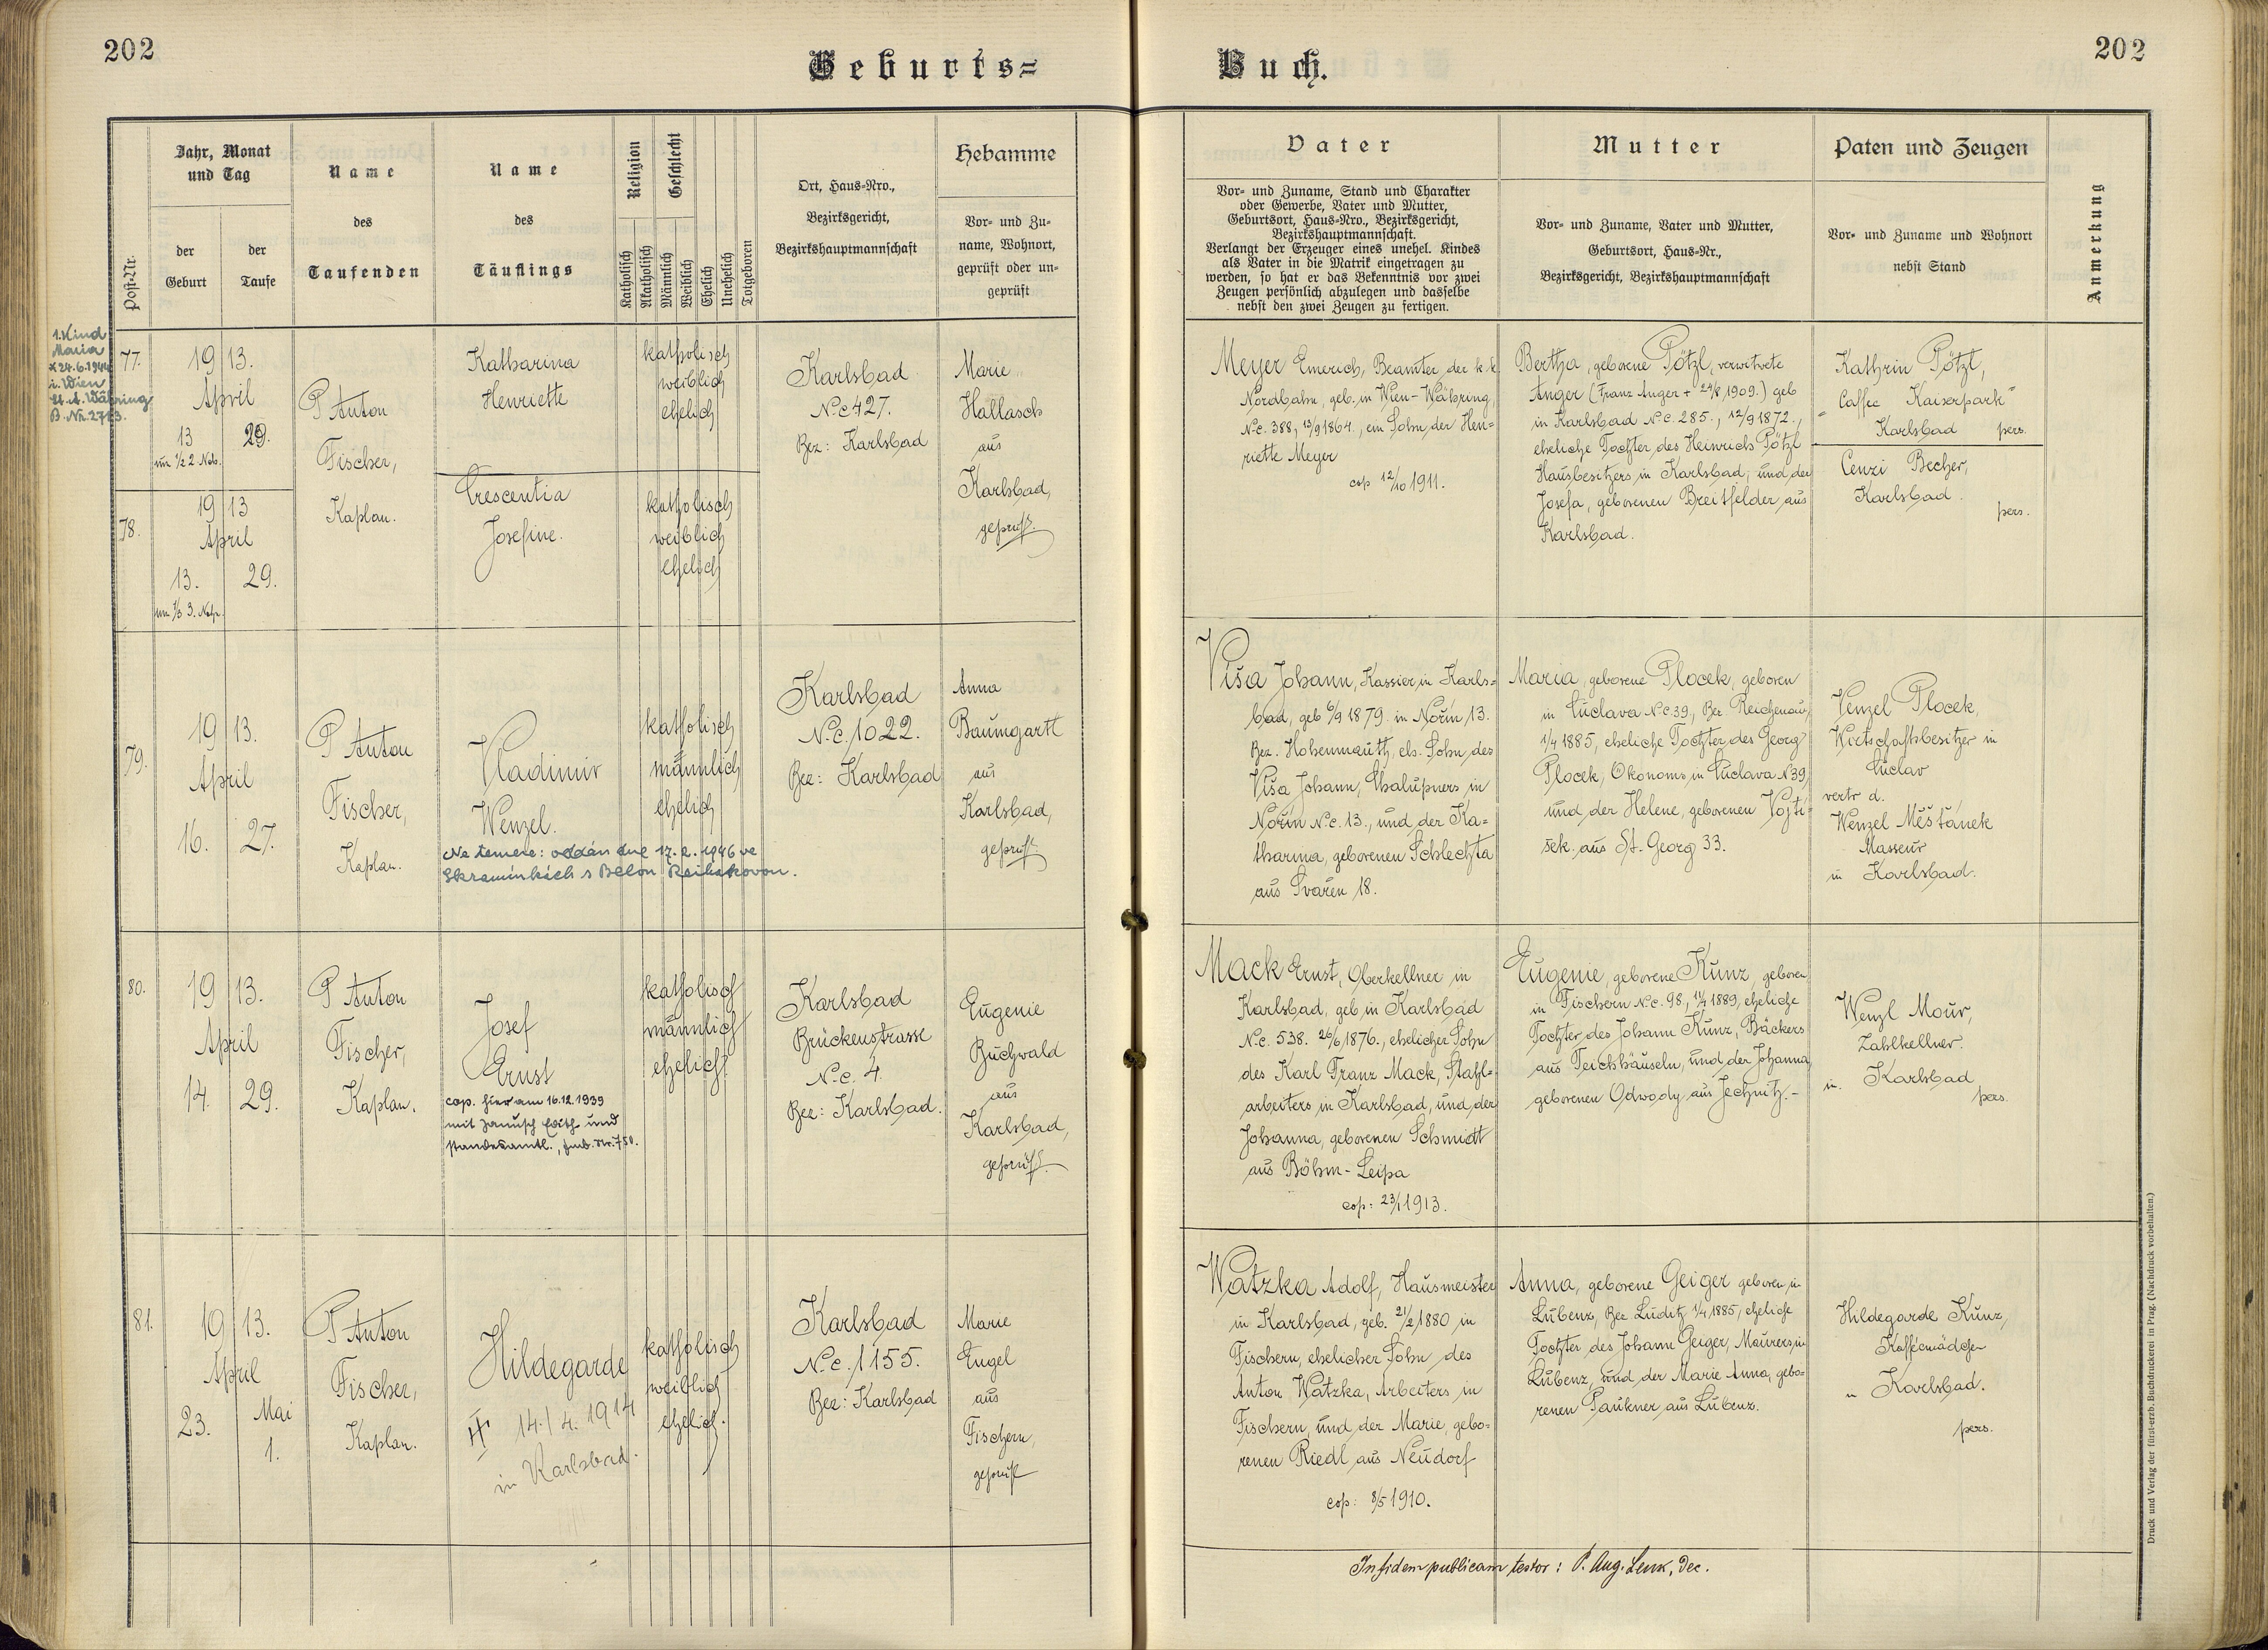 202
Geburts=
Buch.
202
Post-Nr.
Jahr, Monat
und Tag
der
Geburt
der
Taufe
Name
des
Taufenden
Name
des
Täuflings
Religion
Geschlecht
Katholisch
Akatholisch
Männlich
Weiblich
Ehelich
Unehelich
Totgeboren
Ort, Haus-Nro.,
Bezirksgericht,
Bezirkshauptmannschaft
Hebamme
Vor- und Zu-
name, Wohnort,
geprüft oder un-
geprüft
Vater
Vor- und Zuname, Stand und Charakter
oder Gewerbe, Vater und Mutter,
Geburtsort, Haus-Nro., Bezirksgericht,
Bezirkshauptmannschaft.
Verlangt der Erzeuger eines unehel. Kindes
als Vater in die Matrik eingetragen zu
werden, so hat er das Bekenntnis vor zwei
Zeugen persönlich abzulegen und dasselbe
nebst den zwei Zeugen zu fertigen.
Mutter
Vor- und Zuname, Vater und Mutter,
Geburtsort, Haus-Nr.,
Bezirksgericht, Bezirkshauptmannschaft
Paten und Zeugen
Vor- und Zuname und Wohnort
nebst Stand
Anmerkung
1. Kind
Maria
x 24.6.1944
i. Wien
St. A. Währing
B. Nr. 2723.
77.
19 13.
April
13 29.
um 1/2 2 Nch.
P Anton
Fischer,
Kaplan.
Katharina
Henriette
katholisch
weiblich
ehelich
Karlsbad
N.c 427.
Bez: Karlsbad
Marie
Hallasch
aus
Karlsbad,
geprüft.
Meyer Emerich, Beamter der k.k.
Nordbahn, geb. in Wien-Währing,
N.c. 388, 13/9 1864., ein Sohn der Hen-
riette Meyer
cop 12/10 1911.
Bertha, geborene Pötzl, verwitwete
Anger (Franz Anger + 24/8 1909.) geb
in Karlsbad N.c. 285., 12/9 1872.,
eheliche Tochter des Heinrich Pötzl
Hausbesitzers in Karlsbad, und der
Josefa, geborenen Breitfelder aus
Karlsbad.
Kathrin Pötzl,
"Caffee Kaiserpark"
Karlsbad pers.
Cenzi Becher,
Karlsbad.
pers.
78.
19 13
April
13. 29.
um 1/3 3. Nch.
Crescentia
Josefine.
katholisch
weiblich
ehelich
79.
19 13.
April
16. 27.
P Anton
Fischer,
Kaplan.
Vladimir
Wenzel.
Ne temere: oddán dne 17.2.1946 ve
katholisch
männlich
ehelich
Karlsbad
N.c. 1022.
Bez: Karlsbad
Anna
Baumgartl
aus
Karlsbad,
geprüft.
Viša Johann, Kassier in Karls-
bad, geb 6/9 1879. in Norin 13.
Bez. Hohenmauth, ehl. Sohn des
Viša Johann, Chalupners in
Norin N.c. 13., und der Ka-
tharina, geborenen Schlechta
aus Svaren 18.
Maria, geborene Plocek, geboren
in Luclava N.c. 39, Bez. Reichenau,
1/4 1885, eheliche Tochter des Georg
Plocek, Ökonoms in Luclava N 39,
und der Helene, geborenen Vojti-
šek aus St. Georg 33.
Venzel Plocek,
Wirtschaftsbesitzer in
Luclav
vertr d.
Wenzel Měštánek
Masseur
in Karlsbad.
80.
19 13.
April
14. 29.
P Anton
Fischer,
Kaplan.
Josef
Ernst
cop. hier am 16.12.1939
mit Janusch Edith und
standesamtl.
katholisch
männlich
ehelich
Karlsbad
Brückenstrasse
N.c. 4.
Bez: Karlsbad.
Eugenie
Buchwald
aus
Karlsbad,
geprüft.
Mack Ernst, Oberkellner in
Karlsbad, geb. in Karlsbad
N.c. 538. 26/6 1876., ehelicher Sohn
des Karl Franz Mack, Stahl-
arbeiters in Karlsbad, und der
Johanna, geborenen Schmidt
aus Böhm-Leipa
cop: 23/1 1913.
Eugenie, geborene Kunz, geboren
in Fischern N.c. 98., 1889, eheliche
Tochter des Johann Kunz, Bäckers
aus Teichhäuseln, und der Johanna
geborenen Odwody aus Jechnitz.-
Wenzl Mour,
Zahlkellner.
in Karlsbad
pers.
81.
19 13.
April
Mai
23. 1.
P Anton
Fischer,
Kaplan.
Hildegarde
14./4. 1914
in Karlsbad.
katholisch
weiblich
ehelich.
Karlsbad
N.c. 1155.
Bez: Karlsbad
Marie
Engel
aus
Fischern,
geprüft
Watzka Adolf, Hausmeister
in Karlsbad, geb. 21/2 1880 in
Fischern, ehelicher Sohn des
Anton Watzka, Arbeiters in
Fischern, und der Marie, gebo-
renen Riedl aus Neudorf
cop: 8/5 1910.
Anna, geborene Geiger geboren in
Lubenz, Bez Luditz, 1/4 1885, eheliche
Tochter des Johann Geiger, Maurers in
Lubenz, und der Marie Anna, gebo-
renen Paukner aus Lubenz.
Hildegarde Kunz,
Kaffeemädchen
in Karlsbad.
pers.
In fidem publicam testor: P. Aug. Lenk, Dec.
Druck und Verlag der fürst-erzb. Buchdruckerei in Prag. (Nachdruck vorbehalten.)